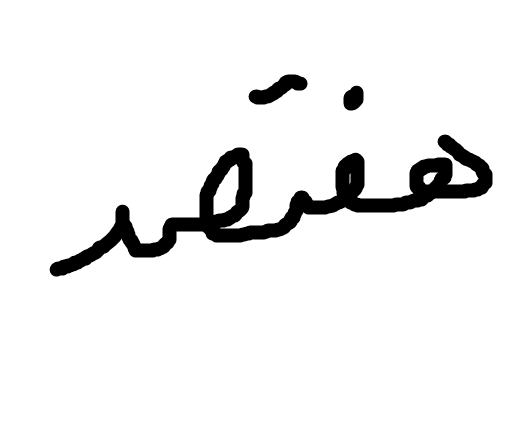 هفتصد